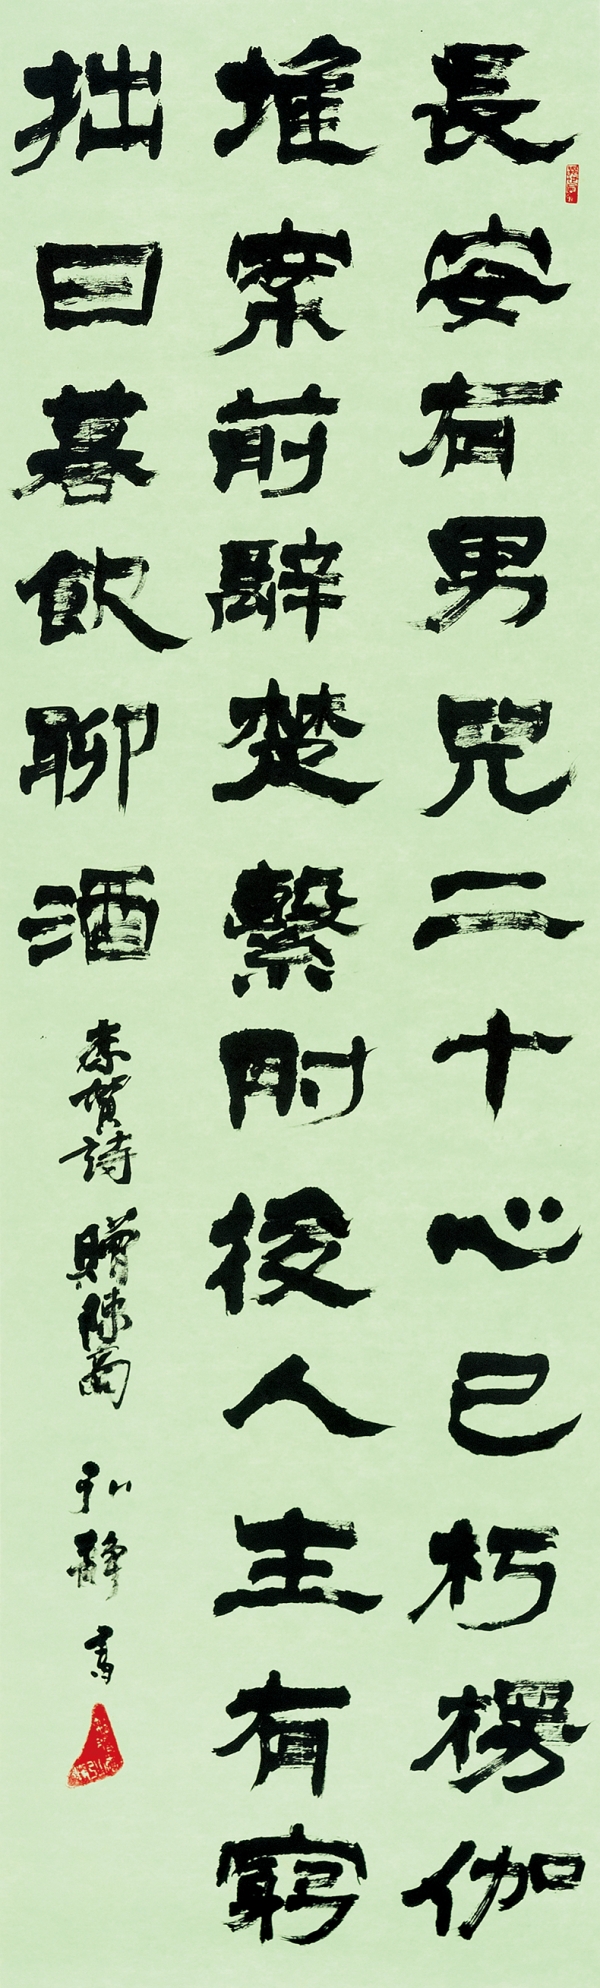 長安有男兒二十心已朽楞伽
堆案前辭楚繫肘後人生有窮
拙日暮飲聊酒 李賀詩 贈陳商 弘靜書